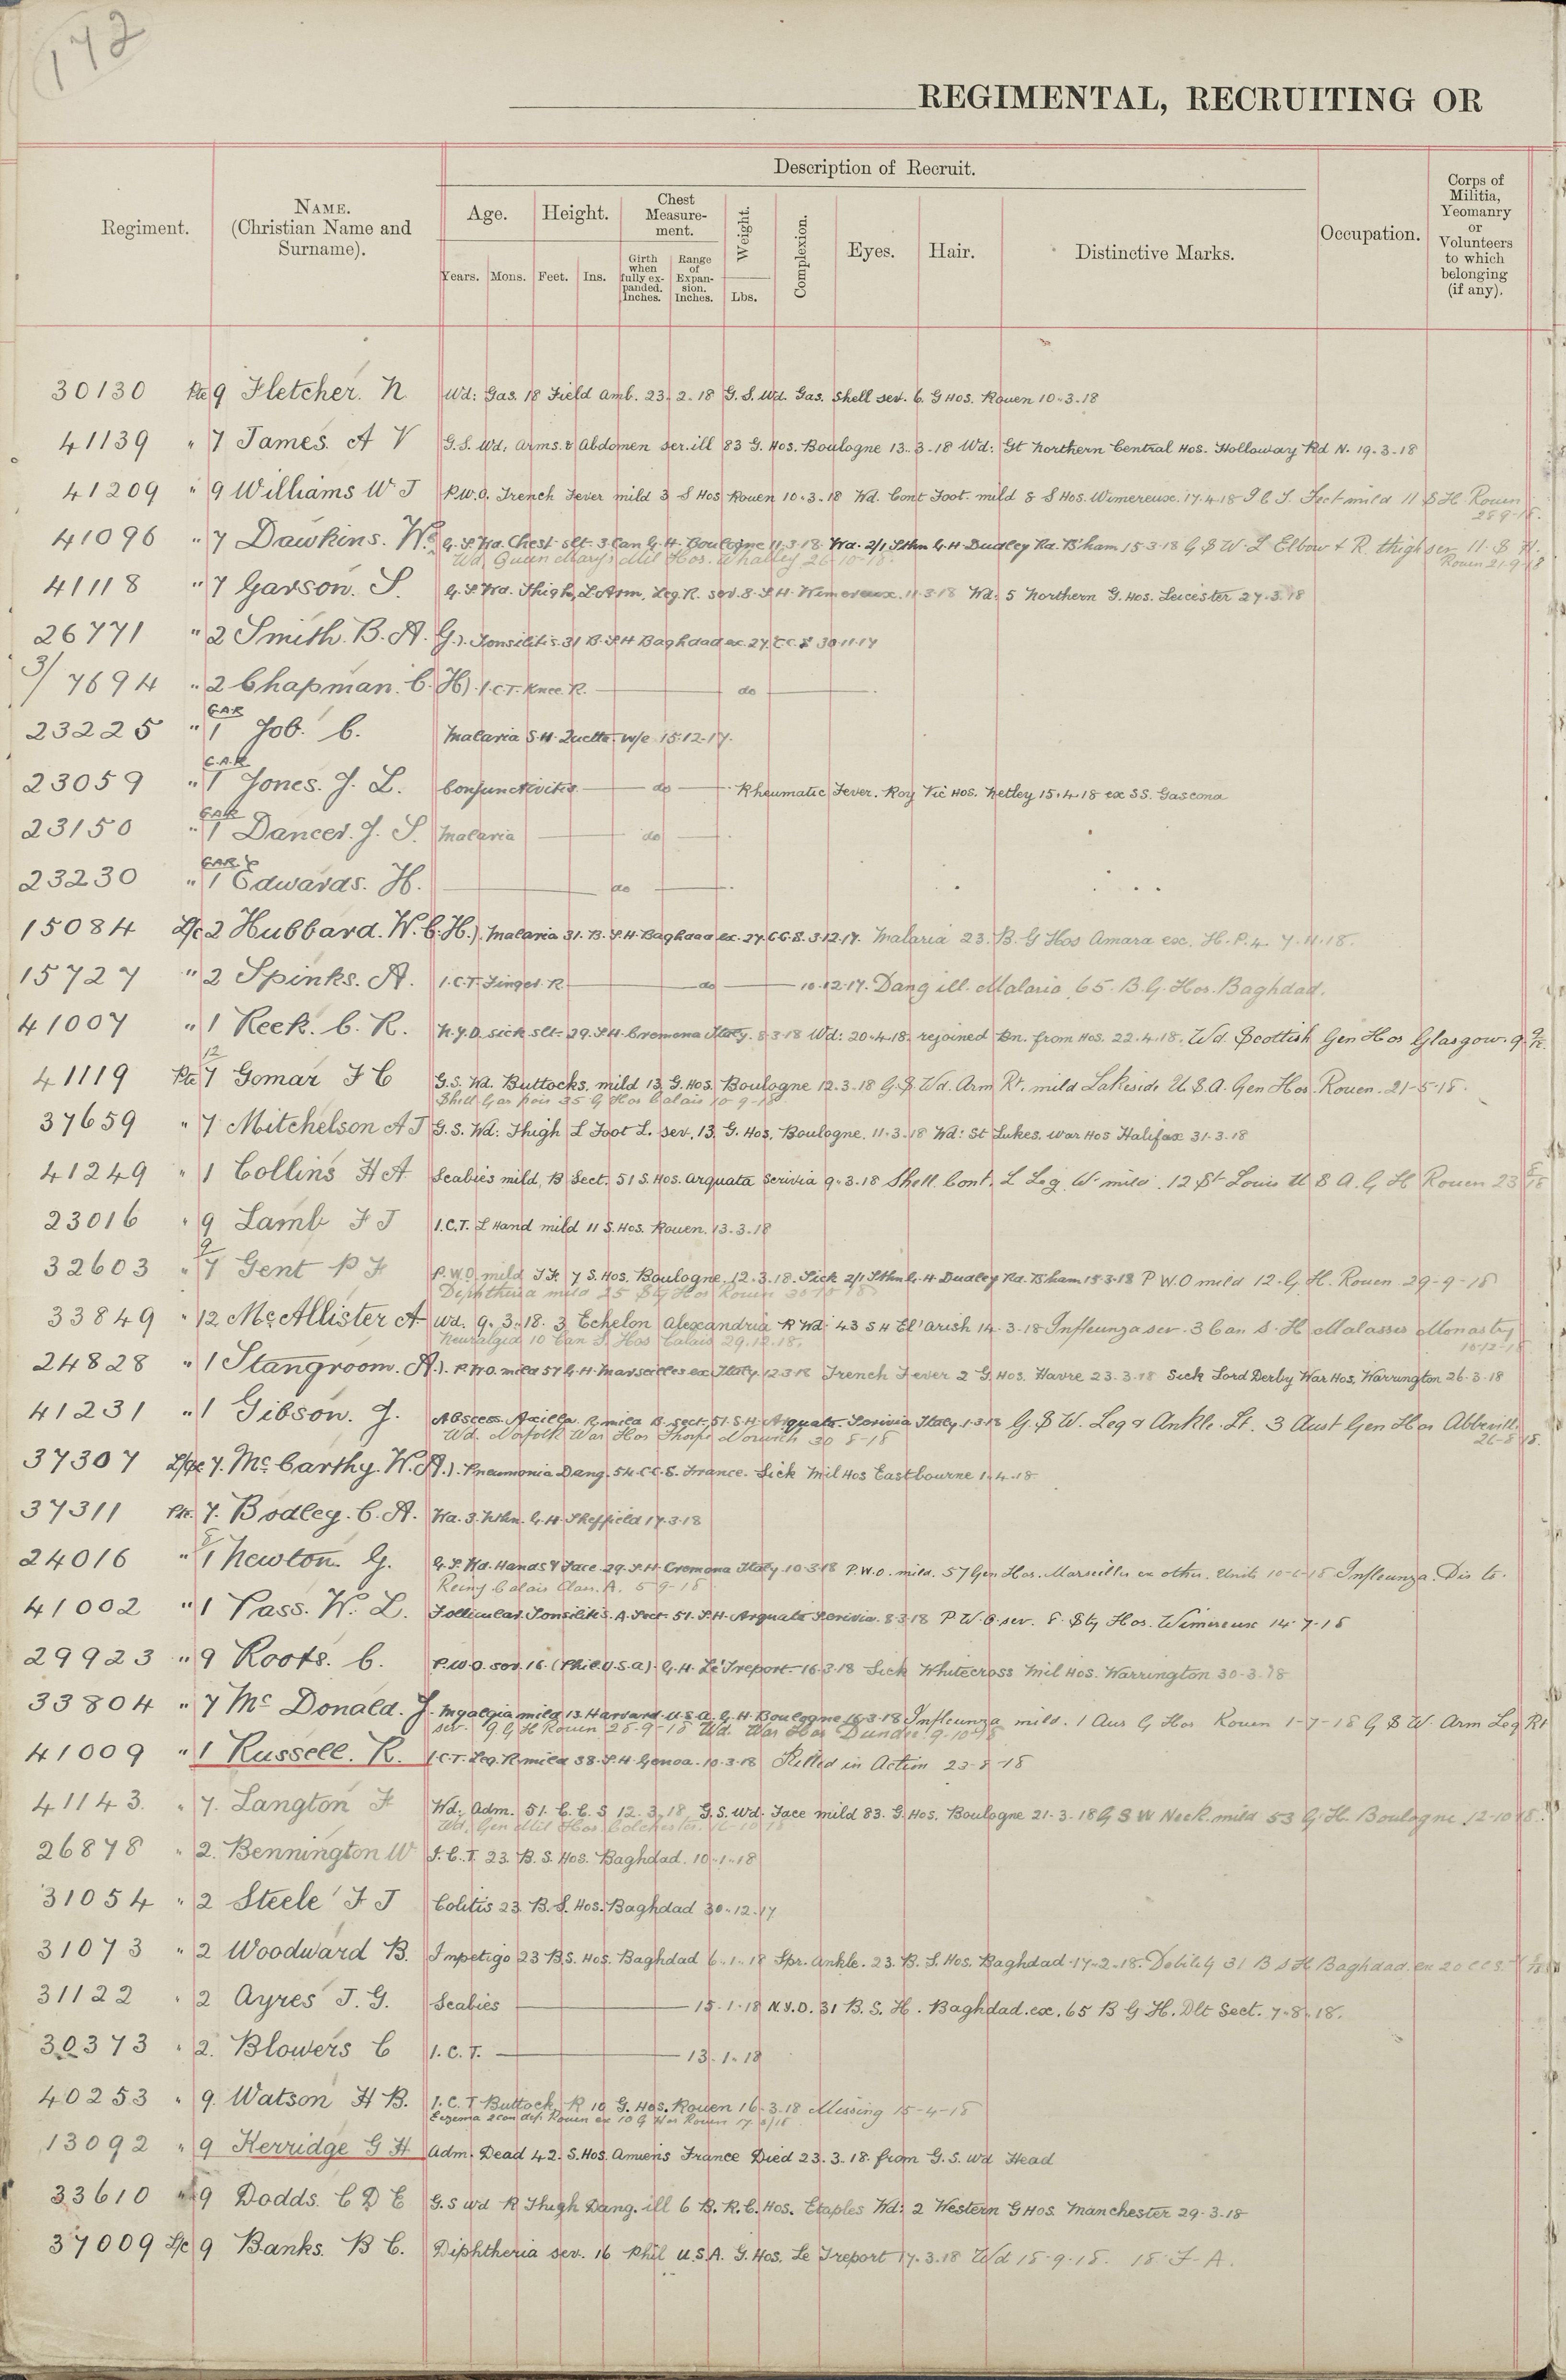 172
REGIMENTAL, RECRUITING OR
Regiment.
NAME.
(Christian Name and
Surname).
Description of Recruit.
Age.
Height.
Chest
Measure-
ment.
Weight.
Complexion.
Eyes.
Hair.
Distinctive Marks.
Occupation.
Corps of
Militia,
Yeomanry
or
Volunteers
to which
belonging
(if any).
Years.
Mons.
Feet.
Ins.
Girth
when
fully ex-
panded.
Inches.
Range
of
Expan-
sion.
Inches.
Lbs.
30130 Pte 9 Fletcher. N. Wd: Gas. 18 Field Amb. 23.2.18 G.S. Wd. Gas. Shell sev. 6. G Hos. Rouen 10.3.18
41139 " 7 James. A V G.S. Wd, Arms. & Abdomen ser. ill 83 G. Hos. Boulogne 13.3.18 Wd: Gt Northern Central Hos. Holloway Rd N. 19.3.18
41209 " 9 Williams W J P.U.O. Trench Fever mild 3 S Hos Rouen 10.3.18 Wd. Cont Foot. mild 8 S Hos. Wimereux. 17.4.18 I.C.T. Feet mild 11 S H. Rouen
28.9.18.
41096 " 7 Dawkins. W. G.S. Wd. Chest. slt. 3 Can G.H. Boulogne 11.3.18. Wd. 2/1 Sthn G.H. Dudley Rd. B'ham 15.3.18 G S W. L Elbow & R. thigh sev 11. S H.
Wd, Queen Mary's Mil Hos. Whalley 26-10-18. Rouen 21.9.18
41118 " 7 Garson. S. G.S. Wd. Thigh, L. Arm, Leg. R. sev. 8. S.H. Wimereux. 11.3.18 Wd: 5 Northern G. Hos. Leicester 27.3.18
26771 " 2 Smith. B. A. G.). Tonsilitis. 31 B.S.H Baghdad ex. 27. C.C.S 30.11.17
3/7694 " 2 Chapman. C. H). I.C.T. Knee. R. do
23225 " G.A.R 1 Job. C. Malaria S.H. Quetta. w/e 15.12.17.
23059 " G.A.R. 1 Jones. J. L. Conjunctivitis do Rheumatic Fever. Roy Vic Hos. Netley 15.4.18 ex SS. Gascona
23150 " G.A.R 1 Dancer. J. S. Malaria do
23230 " G.A.R. 1 Edwards. H. do
15084 L/c 2 Hubbard. W. C. H.). Malaria 31. B.S.H. Baghdad ex. 27. C.C.S. 3.12.17. Malaria 23. B. G Hos Amara ex. H.P. 4. 7.11.18.
15727 " 2 Spinks. A. I.C.T. Finger. R. do 10.12.17. Dang ill. Malaria 65. B.G. Hos. Baghdad.
41007 " 1 Reek. C. R. N.Y.D. sick slt. 29. S.H. Cremona Italy. 8.3.18 Wd: 20.4.18. rejoined Bn. from Hos. 22.4.18. Wd. Scottish Gen Hos Glasgow. 9.9/18.
41119 Pte 12 7 Gomar F C G.S. Wd. Buttocks. mild 13. G. Hos. Boulogne 12.3.18 G.S. Wd. Arm Rt. mild Lakeside U.S.A. Gen Hos. Rouen. 21-5-18.
Shell Gas pois 35 G Hos Calais 10-9-18
37659 " 7 Mitchelson A J G.S. Wd. Thigh L Foot L. sev. 13. G. Hos. Boulogne. 11.3.18 Wd: St Lukes. War Hos Halifax 31.3.18
41249 " 1 Collins H A Scabies mild, B Sect. 51 S. Hos. Arquata Scrivia 9.3.18 Shell Cont. L Leg W. mild. 12 St Louis U S A. G H Rouen 23 8/18
23016 " 9 Lamb F J I.C.T. L Hand mild 11 S. Hos. Rouen. 13.3.18
32603 " 9 7 Gent P F P.U.O. mild J.F. 7 S. Hos. Boulogne. 12.3.18. Sick 2/1 Sthn G.H Dudley Rd. B'ham 15.3.18 P U O mild 12. G. H. Rouen 29-9-18
Diphtheria mild 25 Sty Hos Rouen 30-10-18
33849 " 12 McAllister A Wd. 9.3.18. 3 Echelon Alexandria R Wd: 43 S H El'Arish 14.3.18 Influenza sev. 3 Can S. H Malassis Monastry
Neuralgia 10 Can S. Hos Calais 29.12.18. 10-12-18
24828 " 1 Stangroom. A.). P.U.O. mild 57 G.H. Marseilles ex Italy. 12.3.18 Trench Fever 2 G. Hos. Havre 23.3.18 Sick Lord Derby War Hos, Warrington 26.3.18
41231 " 1 Gibson. J. Abscess. Axilla. R. mild B. Sect. 51. S.H. Arquata. Scrivia Italy. 1.3.18 G.S W. Leg & Ankle. Lt. 3 Aust Gen Hos Abbeville
Wd. Norfolk War Hos Thorpe Norwich 30 8-18 26-8-18.
37307 L/Cpl 7. McCarthy. W. A.). Pneumonia Dang. 54. C.C.S. France. Sick Mil Hos Eastbourne 1.4.18
37311 Pte. 7. Bodley. C. A. Wd. 3. Nthn. G.H. Sheffield 17.3.18
24016 " 8 1 Newton. G. G.S. Wd. Hands & Face. 29. S.H. Cremona Italy. 10.3.18 P.U.O. mild. 57 Gen Hos. Marseilles ex other. Units 10-6-18 Influenza. Dis to.
Reinf Calais Class. A. 5-9-18
41002 " 1 Pass. W. L. Follicular. Tonsilitis. A. Sect. 51. S.H. Arquata Scrivia. 8.3.18 P U.O. sev. 8. Sty Hos. Wimereux 14-7-18
29923 " 9 Roots. C. P.U.O. sev. 16. (Phil. U.S.A). G.H. Le Treport. 16.3.18 Sick Whitecross Mil Hos. Warrington 30.3.18
33804 " 7 Mc Donald. J. Myalgia mild 13. Harvard. U.S.A. G.H. Boulogne 16.3.18 Influenza mild. 1 Aus G Hos Rouen 1-7-18 G S W. Arm Leg Rt
sev. 9 G H Rouen 28-9-18 Wd. War Hos Dundee. 9-10-18
41009 " 1 Russell. R. I.C.T. Leg. R. mild 38. S.H. Genoa. 10.3.18 Killed in Action 23-8-18
41143. " 7. Langton F Wd. Adm. 51. C.C.S 12.3.18, G.S. Wd. Face mild 83. G. Hos. Boulogne 21.3.18 G S W Neck. mild 53 G H. Boulogne 12-10-18.
Wd, Gen Mil Hos. Colchester. 16-10-18
26878 " 2. Bennington W I.C.T. 23. B. S. Hos. Baghdad. 10.1.18
31054 " 2 Steele F J Colitis 23. B. S. Hos. Baghdad 30.12.17
31073 " 2 Woodward B. Impetigo 23 B.S. Hos. Baghdad 6.1.18 Spr. Ankle. 23. B. S. Hos. Baghdad 17.2.18. Debility 31 B S H Baghdad. ex 20 C C S.
31122 " 2 Ayres J. G. Scabies 15.1.18 N.Y.D. 31 B. S. H. Baghdad. ex. 65 B G H. Dlt Sect. 7.8.18.
30373 " 2. Blowers C I.C.T. 13.1.18
40253 " 9. Watson H B. I.C.T Buttock. R 10 G. Hos. Rouen 16.3.18 Missing 15-4-18
Eczema 2 con dep Rouen ex 10 G Hos Rouen
13092 " 9 Kerridge G H Adm. Dead 42. S. Hos. Amiens France Died 23.3.18. from G.S. Wd Head
33610 " 9 Dodds. C D E G.S Wd R Thigh Dang. ill 6 B.R.C. Hos. Etaples Wd: 2 Western G Hos. Manchester 29.3.18
37009 L/c 9 Banks. B C. Diphtheria sev. 16 Phil U.S.A. G. Hos. Le Treport 17.3.18 Wd 18.9.18. 18. F. A.